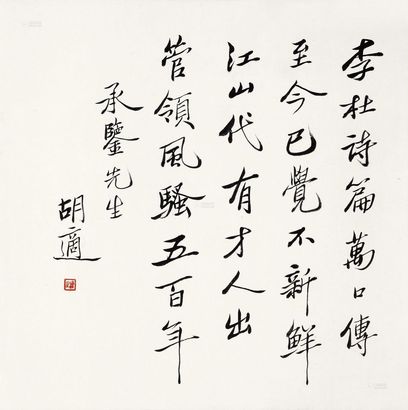 李杜诗篇萬口傳
至今已覺不新鮮
江山代有才人出
管領風騷五百年
承鑒先生
胡適